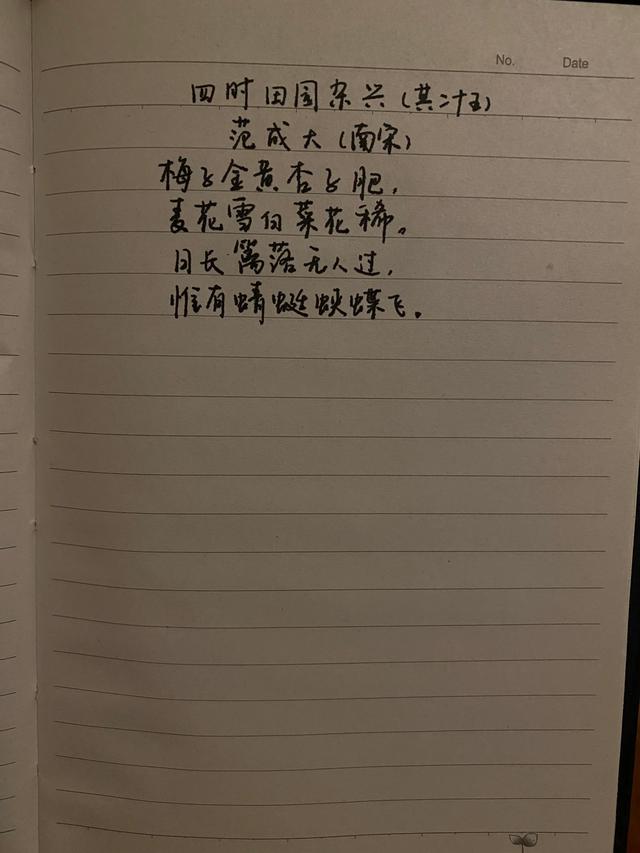 No. Date
四时田园杂兴(其二十五)
范成大(南宋)
梅子金黄杏子肥,
麦花雪白菜花稀。
日长篱落无人过,
惟有蜻蜓蛱蝶飞。